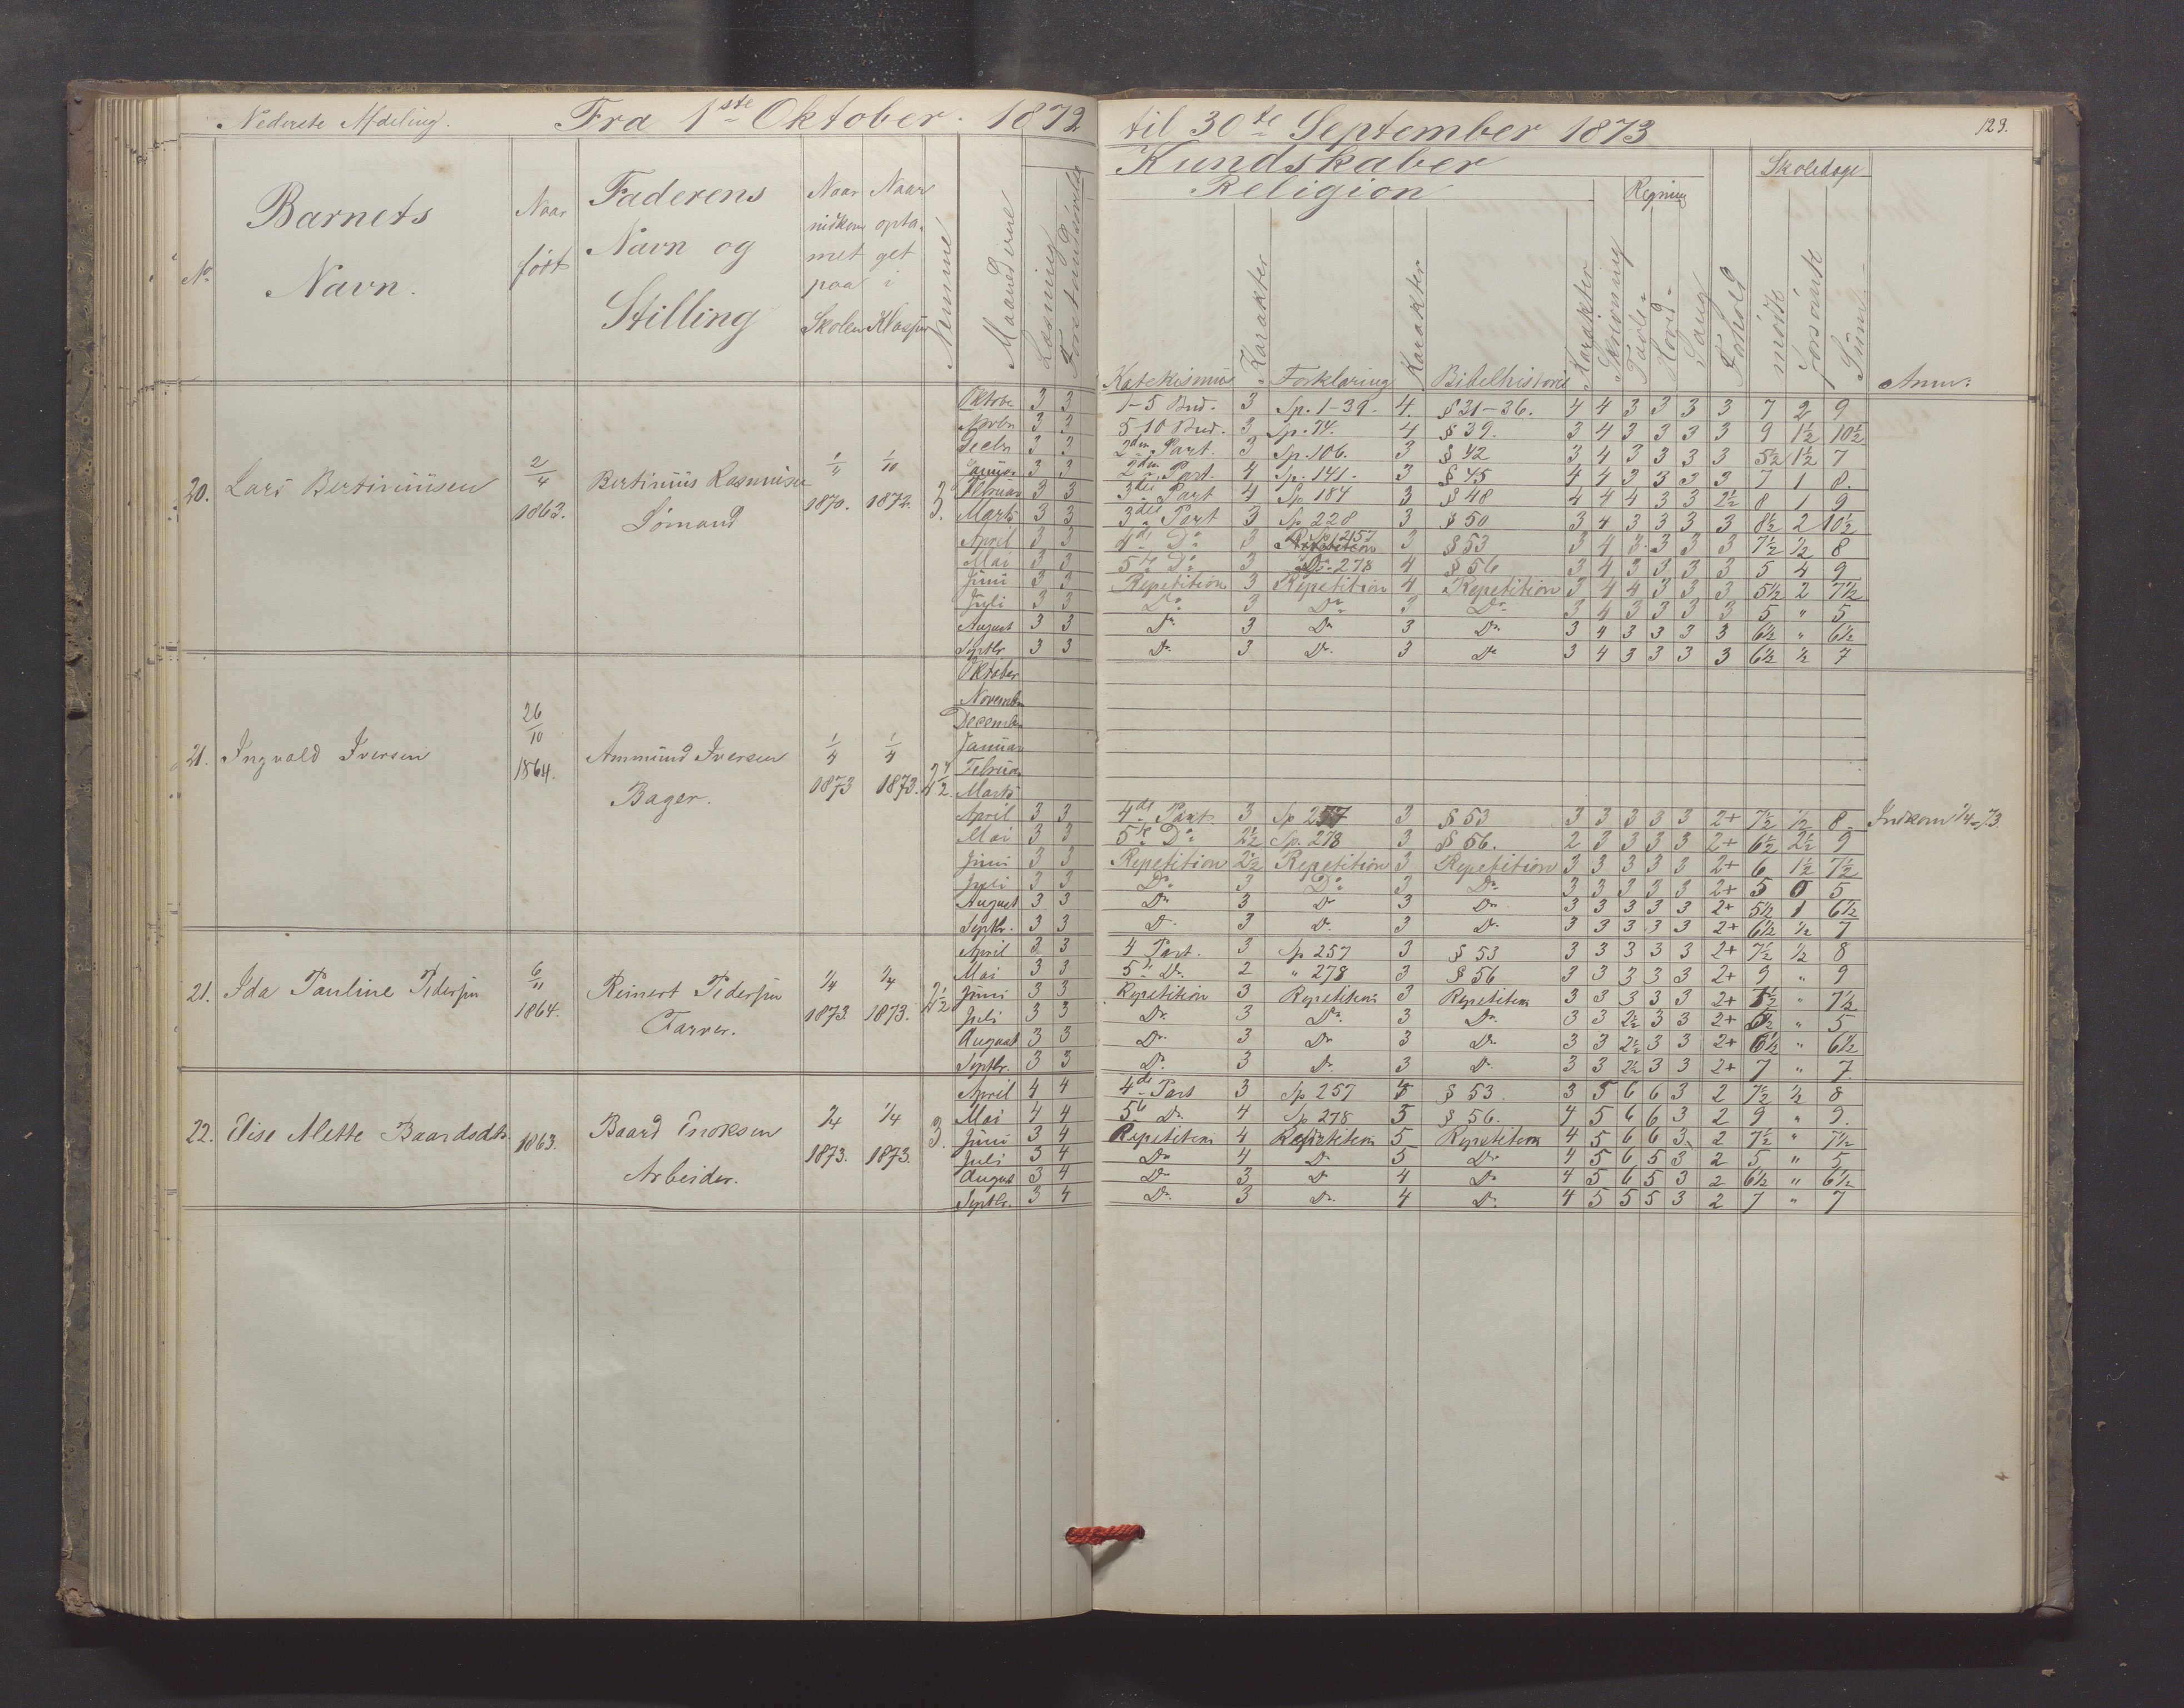 Nederste Afdeling. Fra 1ste Oktober. 1872 til 30te September 1873 129.
Kundskaber
Religion Regning Skoledage
No. Barnets Navn. Naar født Faderens Navn og Stilling Naar indkommet paa Skolen Naar optaget i Klassen Numme Maanederne Læsning Forstandsøvelse Katekismus Karakter Forklaring Karakter Bibelhistorie Karakter Skrivning Tavle- Hoved- Sang Forhold mødte forsømte Sum Anm:
20. Lars Bertiniusen 2/4 1863. Bertinius Rasmusen Sømand 1/4 1870. 1/10 1872. 3.
Oktobr 3 3 1-5 Bud. 3 Sp. 1-39. 4. § 31-36. 4 4 3 3 3 3 7 2 9
Novbr 3 3 5-10 Bud. 3 Sp. 74. 4 § 39. 3 4 3 3 3 3 9 1½ 10½
Decbr 3 3 2den Part. 3 Sp. 106. 3 § 42 3 4 3 3 3 3 5½ 1½ 7
Januar 3 3 2den Part. 4 Sp. 141. 3 § 45 4 4 3 3 3 3 7 1 8.
Februar 3 3 3die Part 4 Sp. 184 3 § 48 4 4 4 3 3 2½ 8 1 9
Marts 3 3 3die Part 3 Sp. 228 3 § 50 3 4 3 3 3 3 8½ 2 10½
April 3 3 4de Do 3 Sp. 257 3 § 53 3 4 3. 3 3 3 7½ ½ 8
Mai 3 3 5te Do 3 Do 278 4 § 56 3 4 3 3 3 3 5 4 9
Juni 3 3 Repetition 3 Repetition 4 Repetition 3 4 4 3 3 3 5½ 2 7½
Juli 3 3 Do 3 Do 3 Do 3 4 3 3 3 3 5 " 5
August 3 3 Do 3 Do 3 Do 3 4 3 3 3 3 6½ " 6½
Septbr 3 3 Do 3 Do. 3 Do 3 4 3 3 3 3 6½ ½ 7
21. Ingvald Iversen 26/10 1864. Ammund Iversen Bager. 1/4 1873 1/4 1873. 2½
Oktober
November
December
Januar
Februar
Marts
April 3 3 4de Part. 3 Sp 257 3 § 53 3 3 3 3 3 2+ 7½ ½ 8. Indkom 1/4-73.
Mai 3 3 5te Do 2½ Sp. 278 3 § 56. 2 3 3 3 3 2+ 6½ 2½ 9
Juni 3 3 Repetition 2½ Repetition 3 Repetition 3 3 3 3 3 2+ 6 1½ 7½
Juli 3 3 Do 3 Do 3 Do 3 3 3 3 3 2+ 5 0 5
August 3 3 Do 3 Do 3 Do 3 3 3 3 3 2+ 5½ 1 6½
Septbr. 3 3 Do 3 Do. 3 Do 3 3 3 3 3 2+ 6½ ½ 7
21. Ida Pauline Pedersen 6/11 1864. Reinert Pedersen Farver. 1/4 1873. 1/4 1873. 2½
April 3 3 4 Part. 3 Sp 257 3 § 53 3 3 3 3 3 2+ 7½ ½ 8
Mai 3 3 5te Do. 2 " 278 3 § 56 3 3 3 3 3 2+ 9 " 9
Juni 3 3 Repetition 3 Repetition 3 Repetition 3 3 3 3 3 2+ 7½ " 7½
Juli 3 3 Do. 3 Do. 3 Do. 3 3 2½ 3 3 2+ " 5
August 3 3 Do. 3 Do 3 Do 3 3 2½ 3 3 2+ 6½ " 6½
Septbr. 3 3 Do. 3 Do. 3 Do 3 3 2½ 3 3 2+ 7 " 7.
22. Elise Mette Baardsdtr. 1863. Baard Enoksen Arbeider. 1/4 1873. 1/4 1873. 3.
April 4 4 4de Part 3 Sp 257 § 53. 3 5 6 6 3 2 7½ ½ 8
Mai 4 4 5te Do. 4 Sp 278 5 § 56. 4 5 6 6 3 2 9 " 9.
Juni 3 4 Repetition 4 Repetition 5 Repetition 4 5 6 6 3 2 7½ " 7½
Juli 3 4 Do 4 Do 5 Do 4 5 6 5 3 2 5 " 5
August 3 4 Do 3 Do 4 Do 4 5 6 5 3 2 6½ " 6½
Septbr. 3 4 Do. 3 Do. 4 Do. 4 5 5 5 3 2 7 " 7